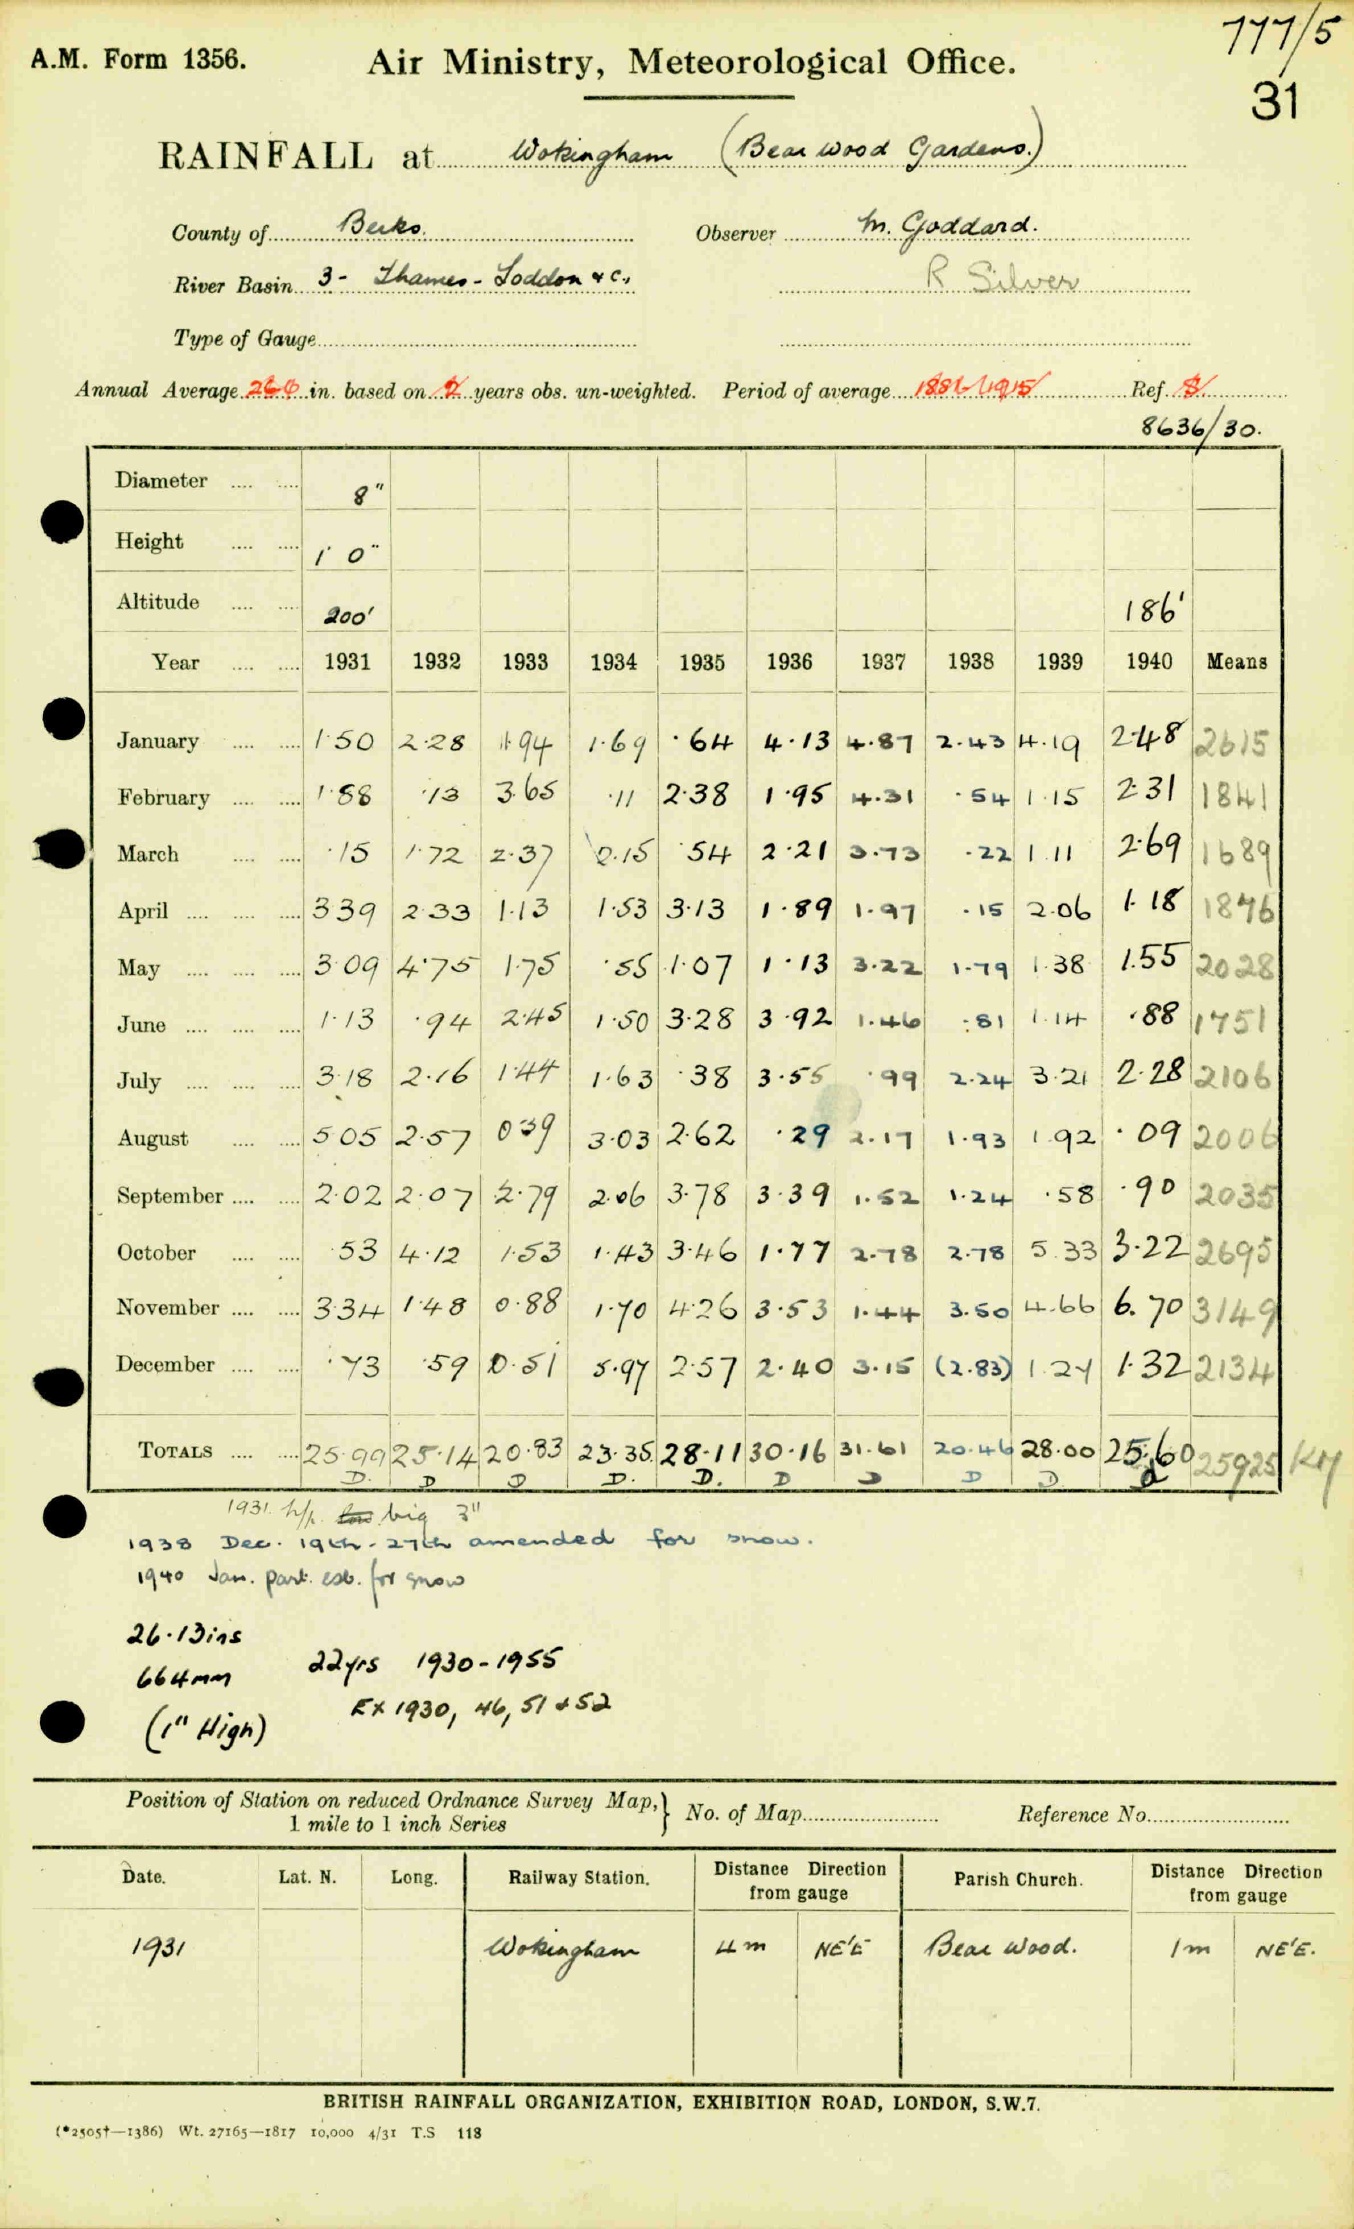 777/5
A.M. Form 1356. Air Ministry, Meteorological Office.
31
RAINFALL at Wokingham (Bear Wood Gardens.)
County of Berks. Observer M. Goddard.
River Basin 3- Thames - Loddon & c., R Silver
Type of Gauge
Annual Average in. based on years obs. un-weighted. Period of average 1881-1915 Ref. 8
8636/30.
Diameter 8"
Height 1' 0"
Altitude 200' 186'
Year 1931 1932 1933 1934 1935 1936 1937 1938 1939 1940 Means
January 1·50 2·28 1·94 1·69 ·64 4·13 4·87 2·43 4·19 2·48 2615
February 1·88 ·13 3·65 ·11 2·38 1·95 4·31 ·54 1·15 2·31 1841
March ·15 1·72 2·37 2·15 ·54 2·21 3·73 ·22 1·11 2·69 1689
April 3·39 2·33 1·13 1·53 3·13 1·89 1·97 ·15 2·06 1·18 1876
May 3·09 4·75 1·75 ·55 1·07 1·13 3·22 1·79 1·38 1·55 2028
June 1·13 ·94 2·45 1·50 3·28 3·92 1·46 ·81 1·14 ·88 1751
July 3·18 2·16 1·44 1·63 ·38 3·55 ·99 2·24 3·21 2·28 2106
August 5·05 2·57 0·39 3·03 2·62 ·29 2·17 1·93 1·92 ·09 2006
September 2·02 2·07 2·79 2·06 3·78 3·39 1·52 1·24 ·58 ·90 2035
October ·53 4·12 1·53 1·43 3·46 1·77 2·78 2·78 5·33 3·22 2695
November 3·34 1·48 0·88 1·70 4·26 3·53 1·44 3·50 4·66 6·70 3149
December ·73 ·59 0·51 5·97 2·57 2·40 3·15 (2·83) 1·27 1·32 2134
TOTALS 25·99 25·14 20·83 23·35 28·11 30·16 31·61 20·46 28·00 25·60 25925
D. D D D. D. D D D D d
1931 big 3"
1938 Dec. 19th - 27th amended for snow.
1940 Jan. part. est. for snow
26·13ins
664mm 22yrs 1930-1955
(1" High) Ex 1930, 46, 51 & 52
Position of Station on reduced Ordnance Survey Map, 1 mile to 1 inch Series } No. of Map Reference No.
Date. Lat. N. Long. Railway Station. Distance Direction from gauge Parish Church. Distance Direction from gauge
1931 Wokingham 4m NE'E Bear Wood. 1m NE'E.
BRITISH RAINFALL ORGANIZATION, EXHIBITION ROAD, LONDON, S.W.7.
(*2505†—1386) Wt. 27165—1817 10,000 4/31 T.S 118